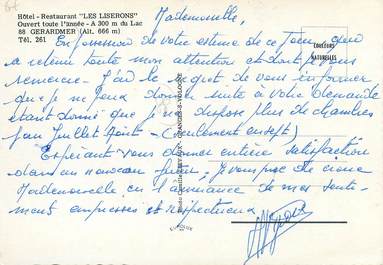 Hôtel - Restaurant "LES LISERONS"
Ouvert toute l'année - A 300 m du Lac
88 GERARDMER (Alt. 666 m)
Tél. 261
Mademoiselle,
En possession de votre estimée de ce jour, qui
a retenu toute mon attention et dont je vous
remercie. J'ai le regret de vous informer
que je ne peux donner suite à votre demande
étant donné que je ne dispose plus de chambres
pour Juillet Août - (seulement en sept)
Espérant vous donner entière satisfaction
dans un nouveau futur, je vous prie de croire
Mademoiselle en l'assurance de mes senti-
ments empressés et respectueux
COULEURS
NATURELLES